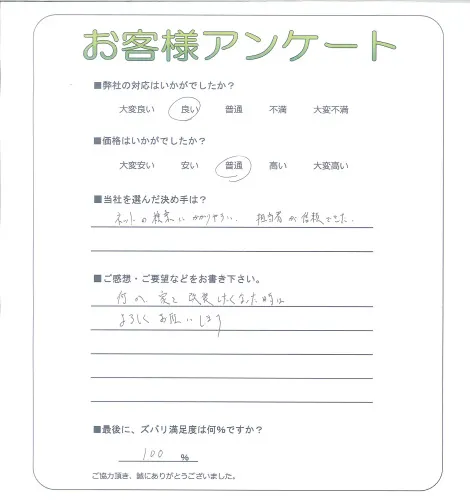 お客様アンケート
■弊社の対応はいかがでしたか?
大変良い 良い 普通 不満 大変不満
■価格はいかがでしたか?
大変安い 安い 普通 高い 大変高い
■当社を選んだ決め手は?
ネットの検索に かかりやすい. 担当者が信頼できた.
■ご感想・ご要望などをお書き下さい。
何か 家を 改装したくなった時は
よろしくお願いします
■最後に、ズバリ満足度は何%ですか?
100 %
ご協力頂き、誠にありがとうございました。